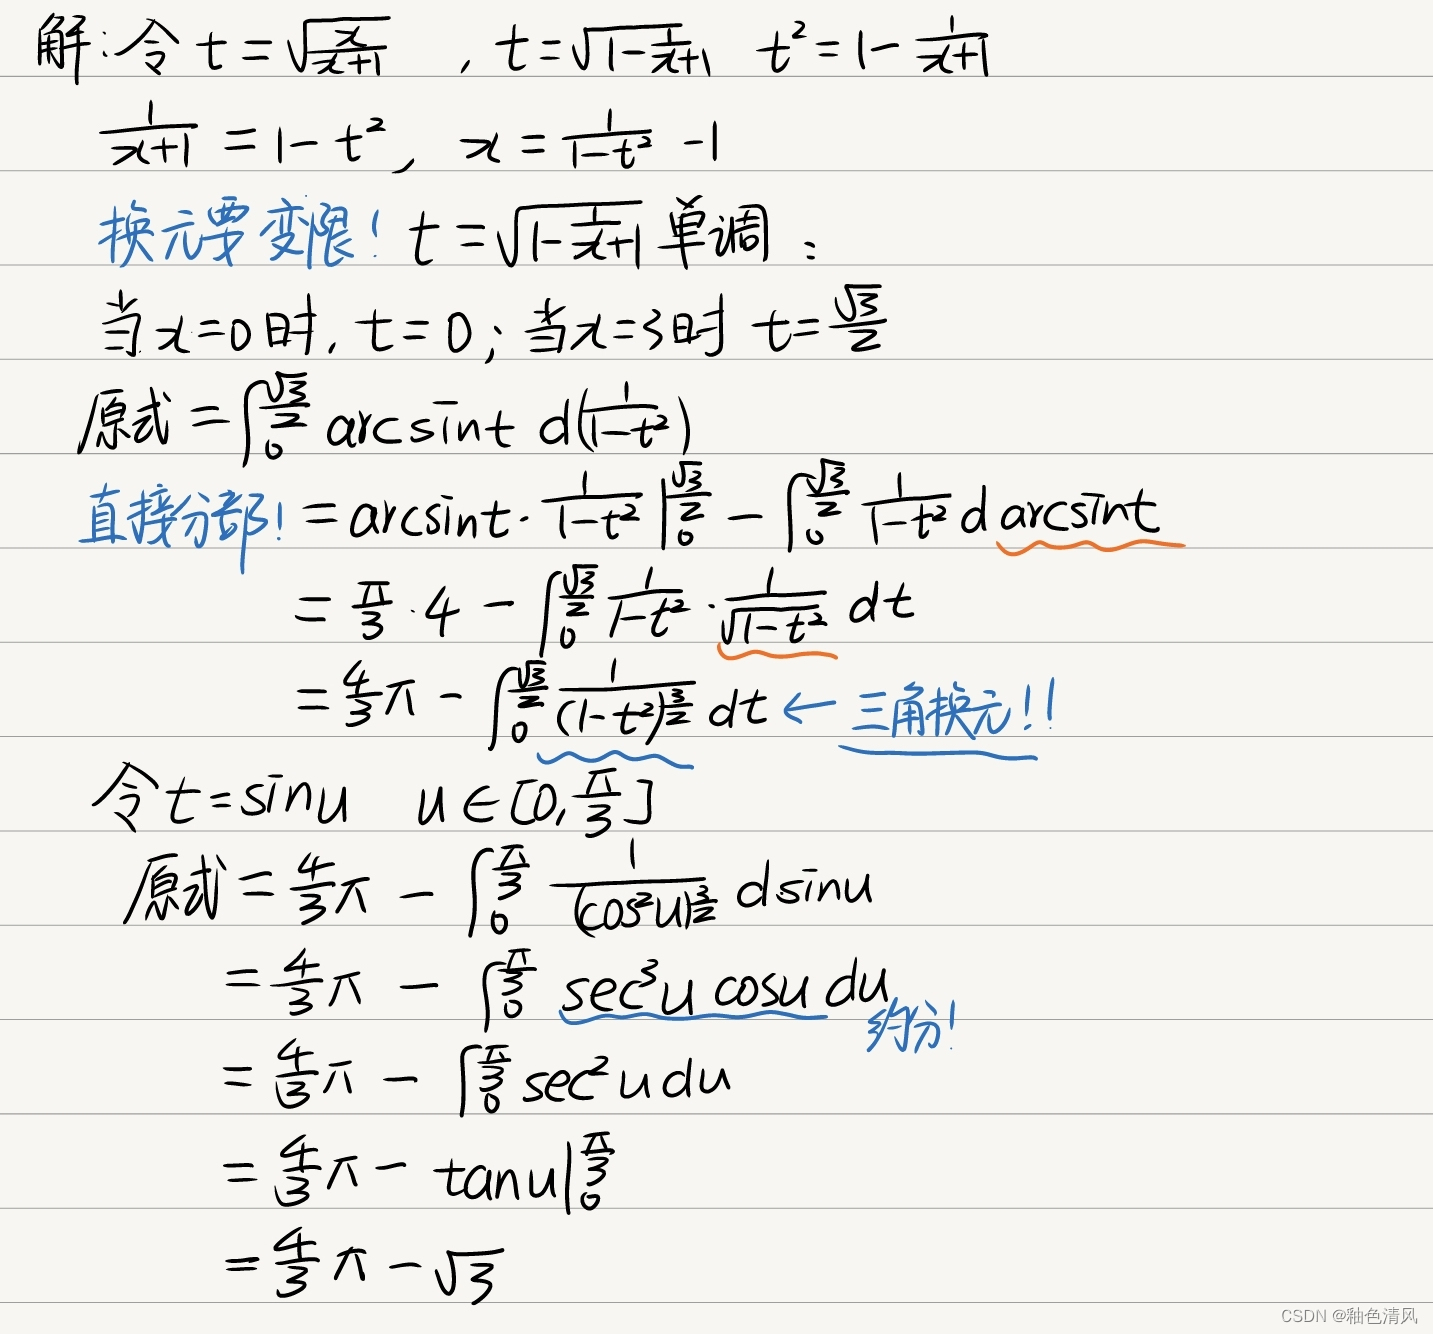 解:令 t=√(x/(x+1)) , t=√(1-1/(x+1)) t²=1-1/(x+1)
1/(x+1)=1-t², x=1/(1-t²)-1
换元要变限! t=√(1-1/(x+1)) 单调:
当x=0时,t=0;当x=3时 t=√3/2
原式=∫₀^(√3/2) arcsint d(1/(1-t²))
直接分部! =arcsint·1/(1-t²)|₀^(√3/2) - ∫₀^(√3/2) 1/(1-t²) d arcsint
=π/3·4-∫₀^(√3/2) 1/(1-t²)·1/√(1-t²) dt
=4/3π-∫₀^(√3/2) 1/(1-t²)^(3/2) dt ← 三角换元!!
令t=sinu u∈[0,π/3]
原式=4/3π-∫₀^(π/3) 1/(cos²u)^(3/2) dsinu
=4/3π-∫₀^(π/3) sec³u cosu du 约分!
=4/3π-∫₀^(π/3) sec²u du
=4/3π-tanu|₀^(π/3)
=4/3π-√3
CSDN @釉色清风